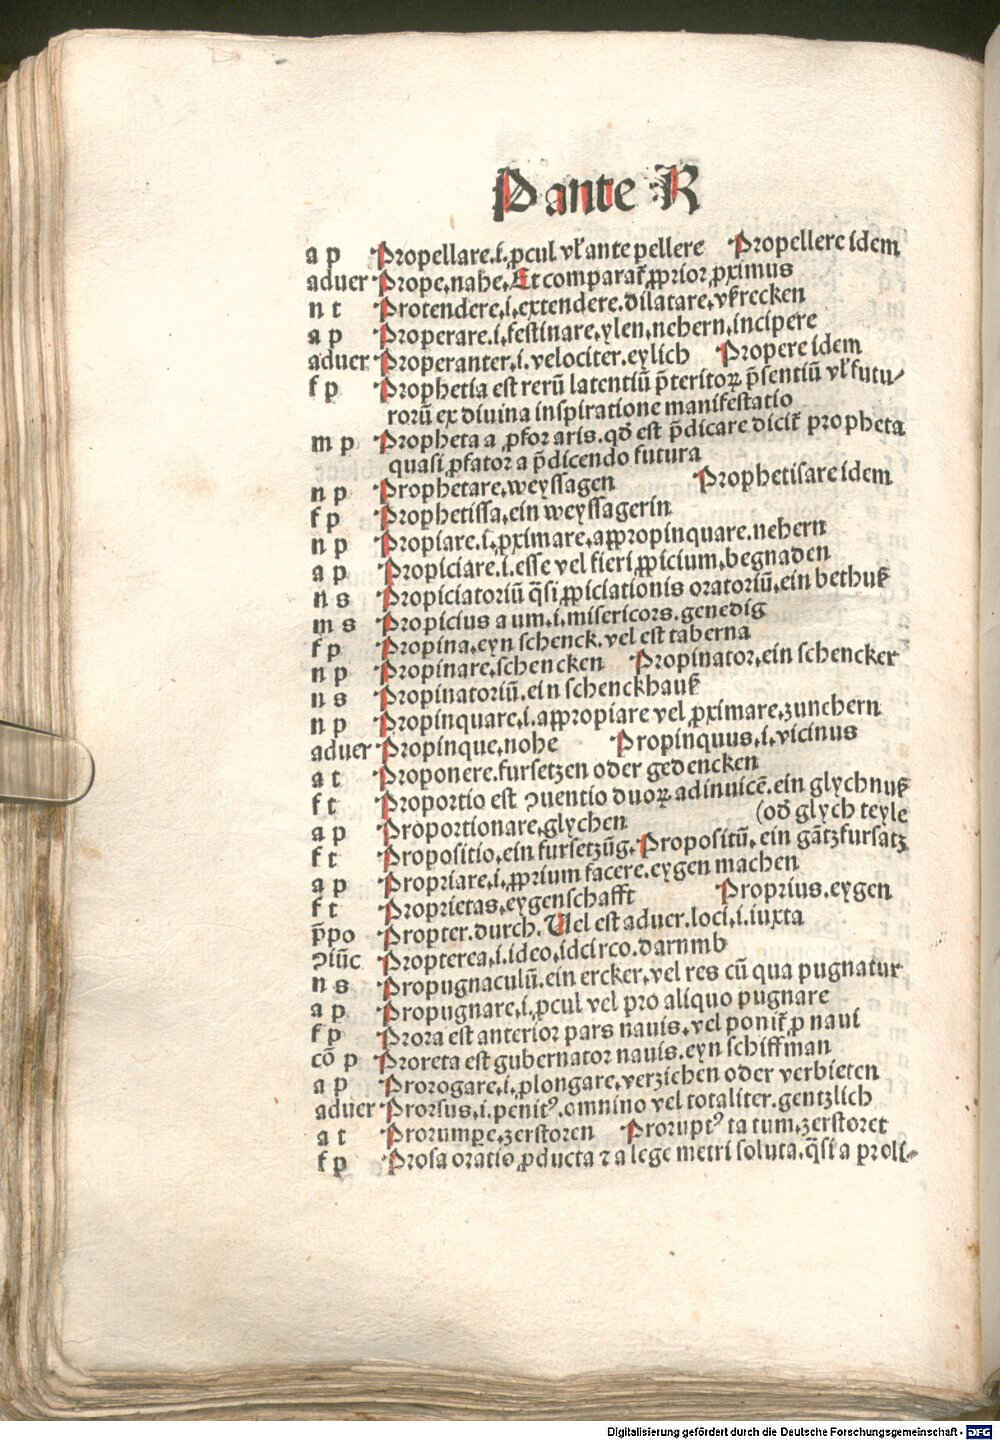 Pante R
a p Propellare.i.ꝓcul vl̕ ante pellere Propellere idem
aduer Prope.nahe.Et comparat̕ ꝓprior ꝓximus
n t Protendere.i.extendere.dilatare.vſtrecken
a p Properare.i.feſtinare.ylen.nehern.incipere
aduer Properanter.i.velociter.eylich Propere idem
f p Prophetia eſt rerū latentiū p̄teritoꝝ p̄ſentiū vl̕ futu⸗
rorū ex diuina inſpiratione manifeſtatio
m p Propheta a ꝓfor aris.qđ eſt p̄dicare dicit̕ propheta
quaſi ꝓfator a p̄dicendo futura
n p Prophetare.weyſſagen Prophetiſare idem
f p Prophetiſſa.ein weyſſagerin
n p Propiare.i.ꝓximare.aꝓpropinquare.nehern
a p Propiciare.i.eſſe vel fieri ꝓpicium.begnaden
n s Propiciatoriū q̄ſi ꝓpiciationis oratoriū.ein bethuß
m s Propicius a um.i.miſericors.genedig
f p Propina.eyn ſchenck.vel eſt taberna
n p Propinare.ſchencken Propinator.ein ſchencker
n s Propinatoriū.ein ſchenckhauß
n p Propinquare.i.appropiare vel ꝓximare.zunehern
aduer Propinque.nohe Propinquus.i.vicinus
a t Proponere.furſetzen oder gedencken
f t Proportio eſt ꝯuentio duoꝝ adinuicē.ein glychnuß
a p Proportionare.glychen (od̕ glych teyle
f t Propoſitio.ein furſetzūg. Propoſitū.ein gātzfurſatz
a p Propriare.i.ꝓprium facere.eygen machen
f t Proprietas.eygenſchafft Proprius.eygen
p̄po Propter.durch.Vel eſt aduer.loci.i.iuxta
ꝯiūc Propterea.i.ideo.idcirco.darnmb
n s Propugnaculū.ein ercker.vel res cū qua pugnatur
a p Propugnare.i.ꝓcul vel pro aliquo pugnare
f p Prora eſt anterior pars nauis.vel ponit̕ ꝓ naui
cō p Proreta eſt gubernator nauis.eyn ſchiffman
a p Prorogare.i.ꝓlongare.verziehen oder verbieten
aduer Prorſus.i.penitꝰ.omnino vel totaliter.gentzlich
a t Prorumpe.zerſtoren Proruptꝰ ta tum.zerſtoret
f p Proſa oratio ꝓducta ⁊ a lege metri ſoluta.q̄ſi a proli⸗
Digitalisierung gefördert durch die Deutsche Forschungsgemeinschaft - DFG